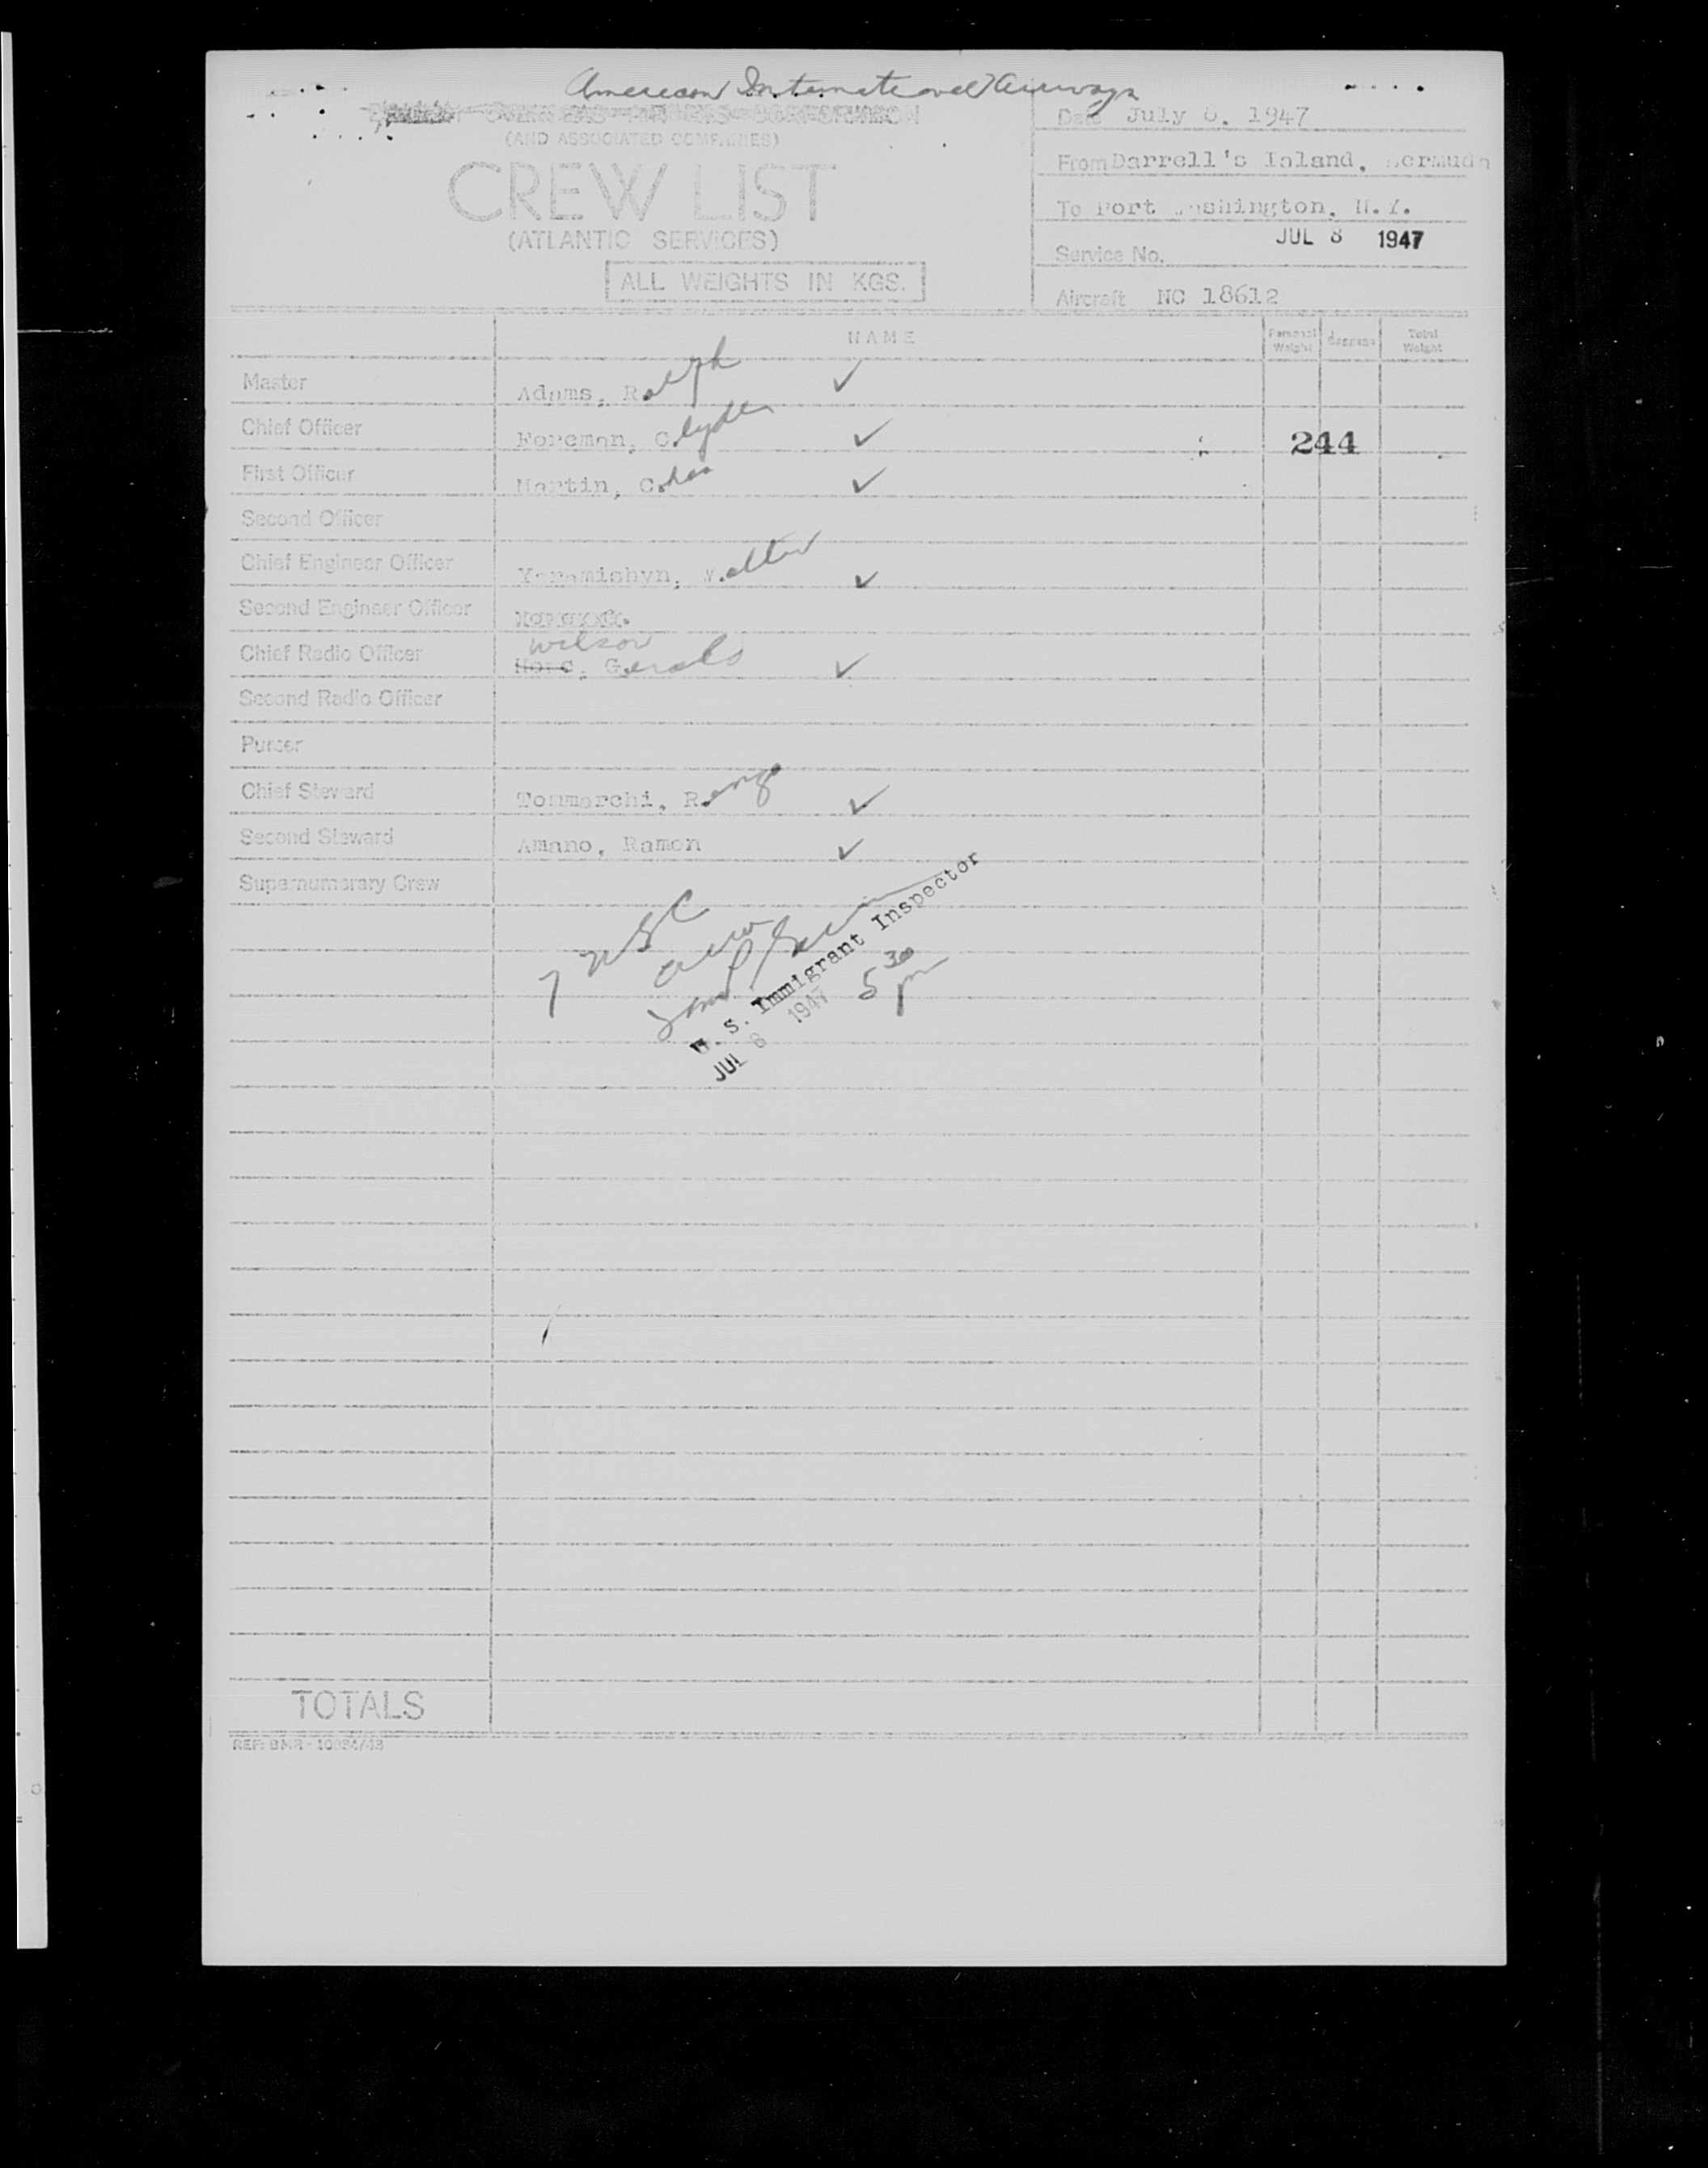 American International Airways
OVERSEAS AIRWAYS CORPORATION
(AND ASSOCIATED COMPANIES)
CREW LIST
(ATLANTIC SERVICES)
ALL WEIGHTS IN KGS.
Date July 8, 1947
From Darrell's Island, Bermuda
To Port Washington, N.Y.
JUL 8 1947
Service No.
Aircraft NC 18612
NAME Personal Weight Baggage Total Weight
Master Adams, Ralph ✓
Chief Officer Foreman, Clyde ✓ 244
First Officer Martin, C. ✓
Second Officer
Chief Engineer Officer Yaramishyn, Walter ✓
Second Engineer Officer
Wilson
Chief Radio Officer Hore, Gerald ✓
Second Radio Officer
Purser
Chief Steward Tommarchi, R. ✓
Second Steward Amano, Ramon ✓
Supernumerary Crew
7 USC
crew
U. S. Immigrant Inspector
JUL 8 1947
5 30 pm
TOTALS